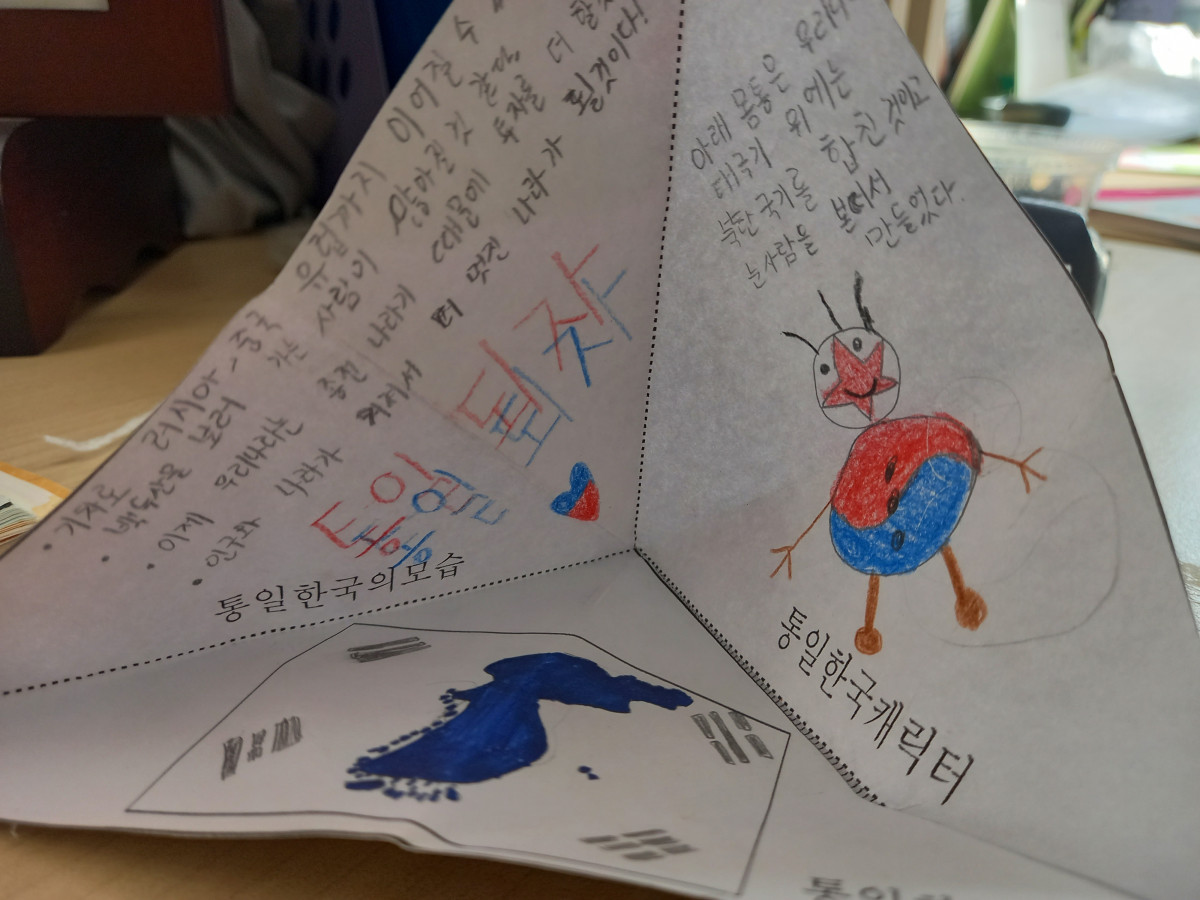 • 기차로 러시아-중국 유럽까지 이어질 수
• 백두산을 보러 가는 사람이 많아진 것 같다
• 이제 우리나라는 종전 나라기 때문에 투자를 더 할것
• 인구와 나라가 커져서 더 멋진 나라가 될것이다!
통일
되자
통일한국의모습
아래 몸통은 우리나
태극기 위에는
북한국기를 합친것이고
눈사람을 본따서
만들었다.
통일한국캐릭터
통일